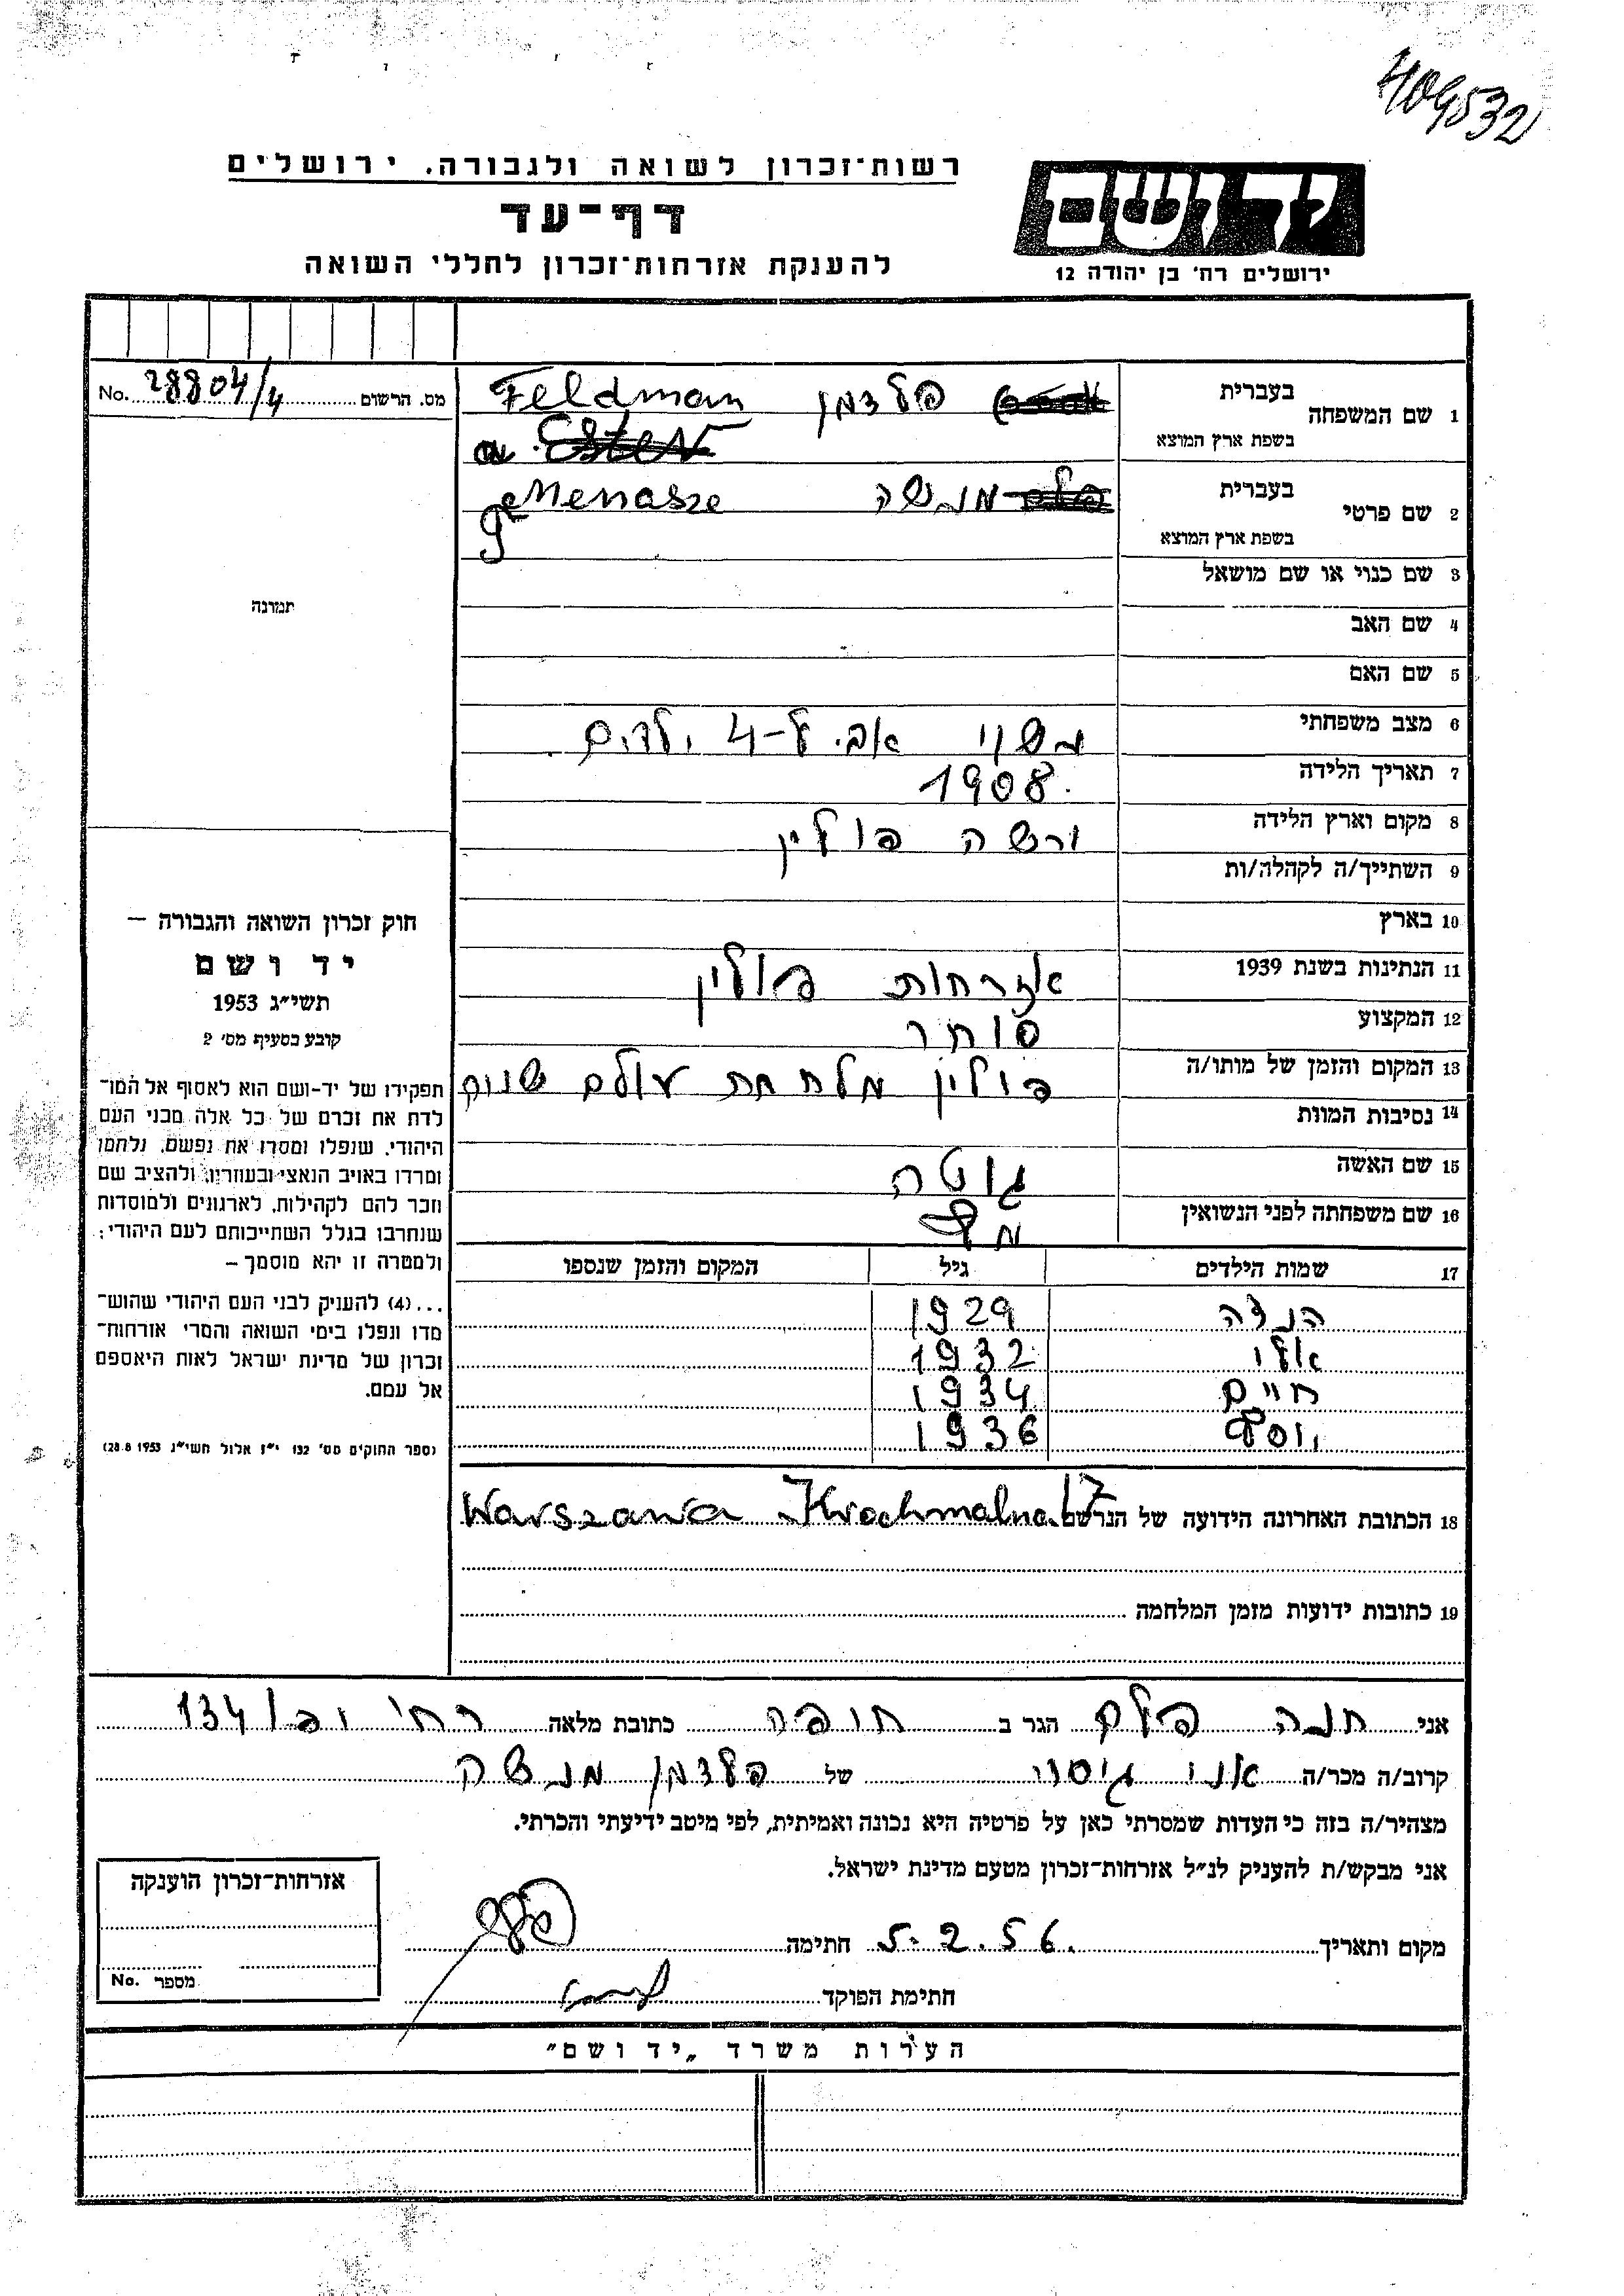 409532
רשות־זכרון לשואה ולגבורה. ירושלים
דף־עד
להענקת אזרחות־זכרון לחללי השואה
יד ושם
ירושלים רח' בן יהודה 12
מס. הרשום 28804/4 No.
1 שם המשפחה
בעברית
בשפת ארץ המוצא
פלדמן Feldman
Ester
2 שם פרטי
בעברית
בשפת ארץ המוצא
מנשה Menasze
3 שם כנוי או שם מושאל
4 שם האב
5 שם האם
6 מצב משפחתי נשוי אב. ל-4 ילדים.
7 תאריך הלידה 1908.
8 מקום וארץ הלידה ורשה פולין
9 השתייך/ה לקהלה/ות
10 בארץ
11 הנתינות בשנת 1939 אזרחות פולין
12 המקצוע סוחר
13 המקום והזמן של מותו/ה פולין מלחמת עולם שניה
14 נסיבות המוות
15 שם האשה גוטה
16 שם משפחתה לפני הנשואין
17 שמות הילדים גיל המקום והזמן שנספו
הנדה 1929
אלי 1932
חיים 1934
יוסף 1936
18 הכתובת האחרונה הידועה של הנרשם Warszawa Krochmalna 17
19 כתובות ידועות מזמן המלחמה
תמונה
חוק זכרון השואה והגבורה —
יד ושם
תשי״ג 1953
קובע בסעיף מס׳ 2
תפקידו של יד-ושם הוא לאסוף אל המו־
לדת את זכרם של כל אלה מבני העם
היהודי, שנפלו ומסרו את נפשם, נלחמו
ומרדו באויב הנאצי ובעוזריו, ולהציב שם
וזכר להם לקהילות, לארגונים ולמוסדות
שנחרבו בגלל השתייכותם לעם היהודי;
ולמטרה זו יהא מוסמך –
...(4) להעניק לבני העם היהודי שהוש־
מדו ונפלו בימי השואה והמרי אזרחות־
זכרון של מדינת ישראל לאות היאספם
אל עמם.
(ספר החוקים מס׳ 132 י״ז אלול תשי״ג 28.8.1953)
אני חנה פלק הגר ב חיפה כתובת מלאה רח' 134/
קרוב/ה מכר/ה אני גיסתי של פלדמן מנשה
מצהיר/ה בזה כי העדות שמסרתי כאן על פרטיה היא נכונה ואמיתית, לפי מיטב ידיעתי והכרתי.
אני מבקש/ת להעניק לנ״ל אזרחות־זכרון מטעם מדינת ישראל.
מקום ותאריך 5.2.56. חתימה
חתימת הפוקד
אזרחות־זכרון הוענקה
מספר No.
הערות משרד „יד ושם״